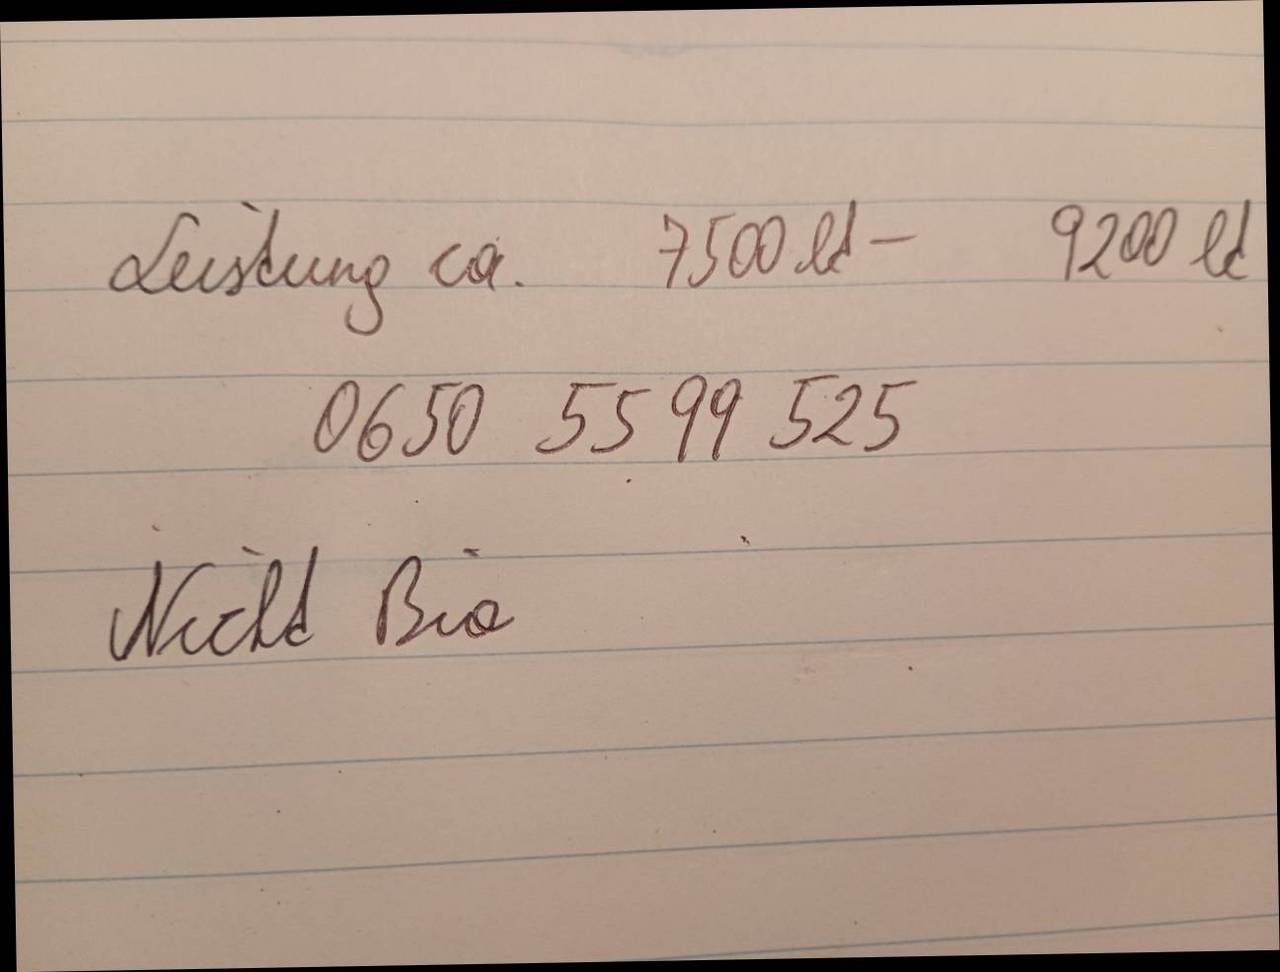 Leistung ca. 7500 lt - 9200 lt
0650 5599 525
Nicht Bio